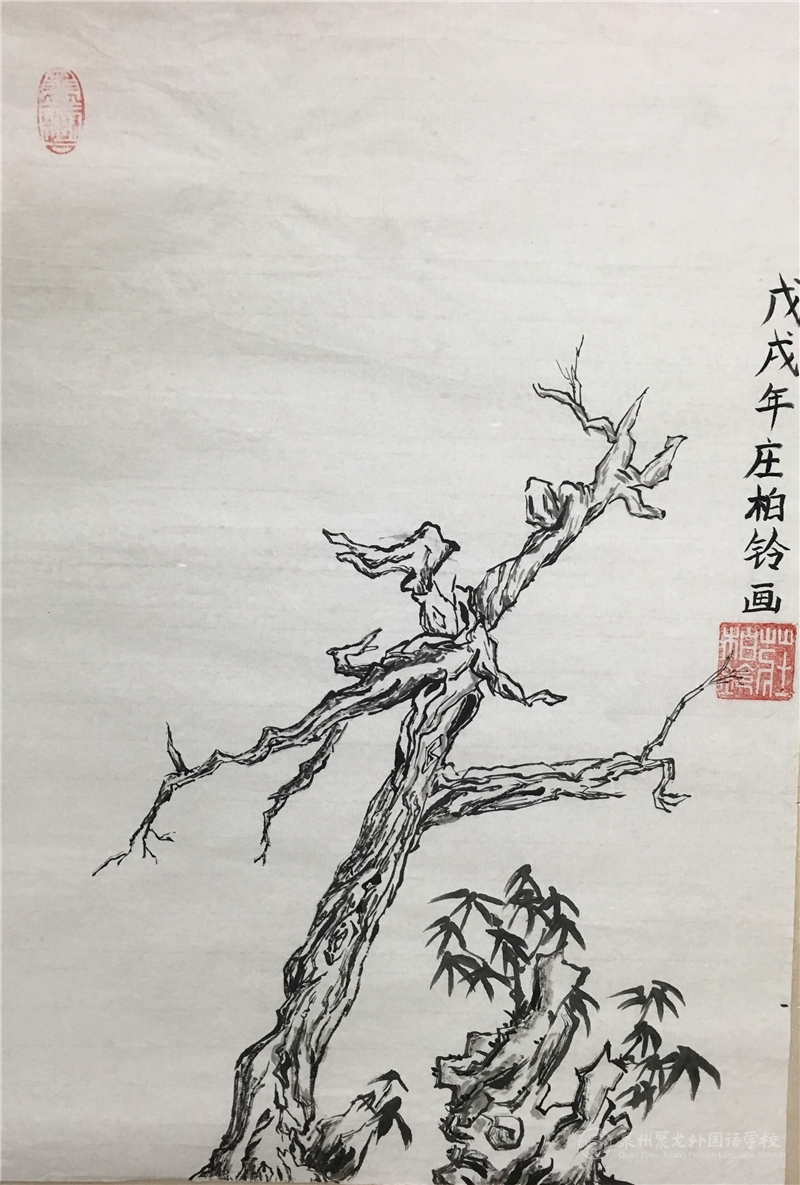 戊戌年庄柏铃画
庄柏铃
泉州聚龙外国语学校
Quan Zhou Julong Foreign Language School